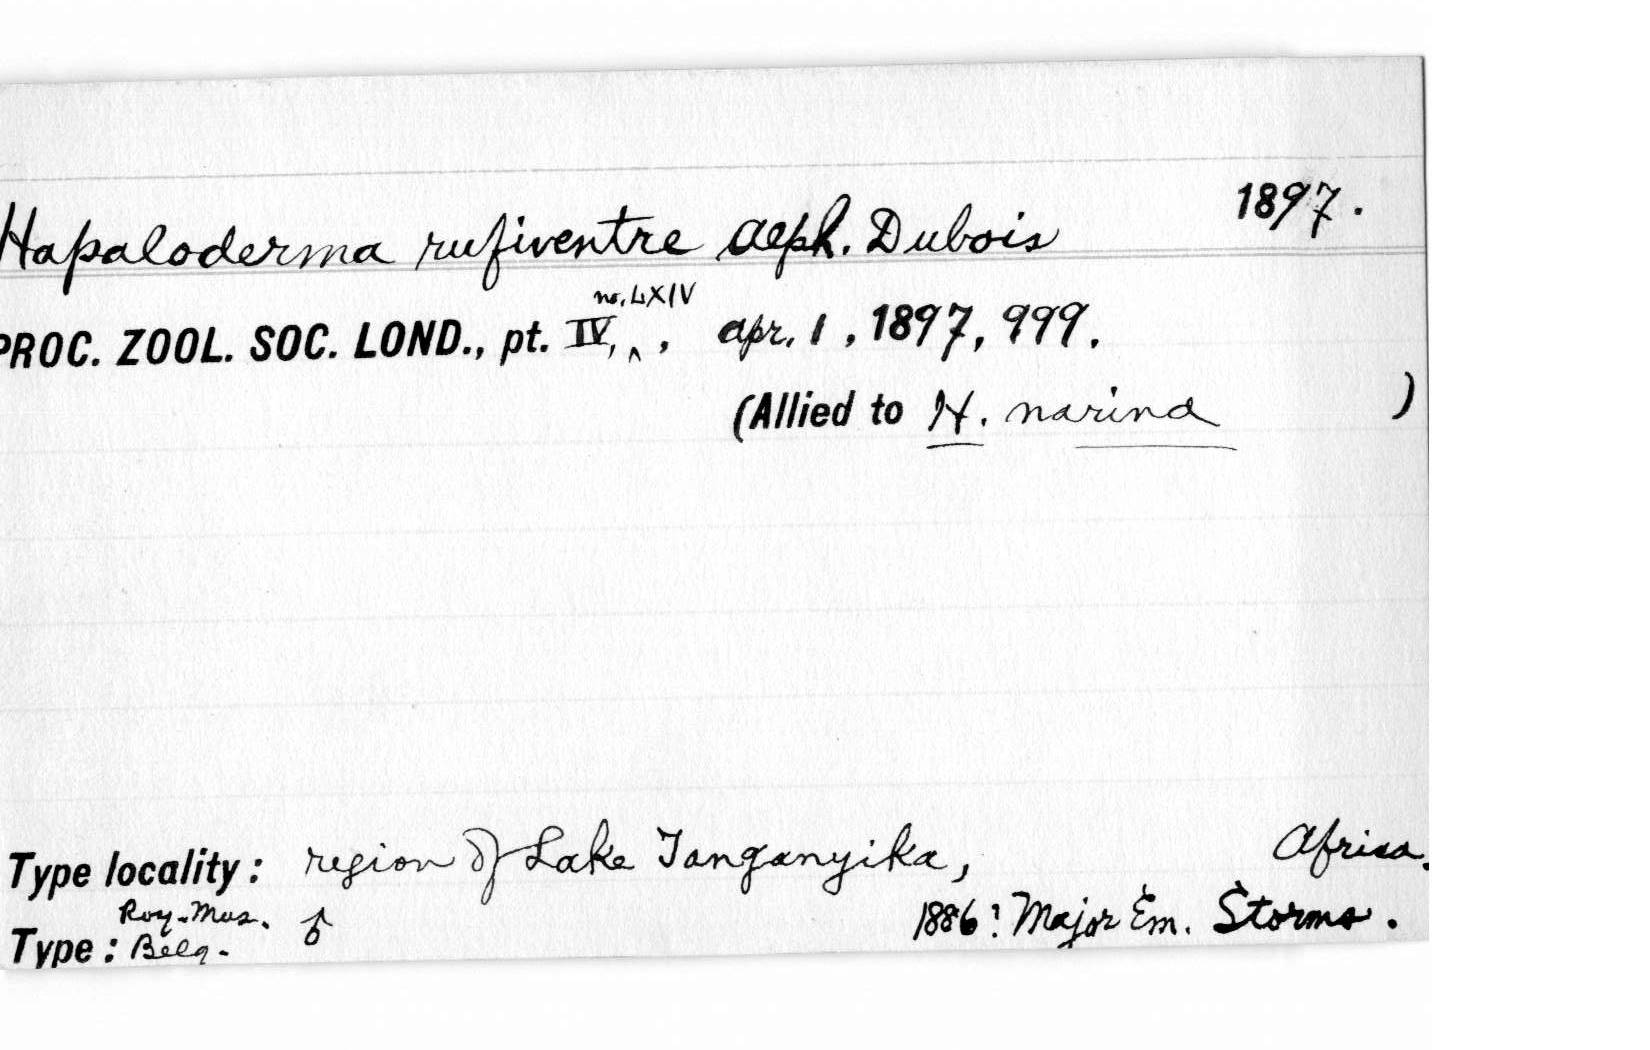 1897.
Hapaloderma rufiventre Alph. Dubois
no. LXIV
PROC. ZOOL. SOC. LOND., pt. IV, ^ , Apr. 1, 1897, 999.
(Allied to H. narina )
Type locality: region of Lake Tanganyika, Africa.
Roy. Mus. ♂ 1886? Major Em. Storms.
Type: Belg.